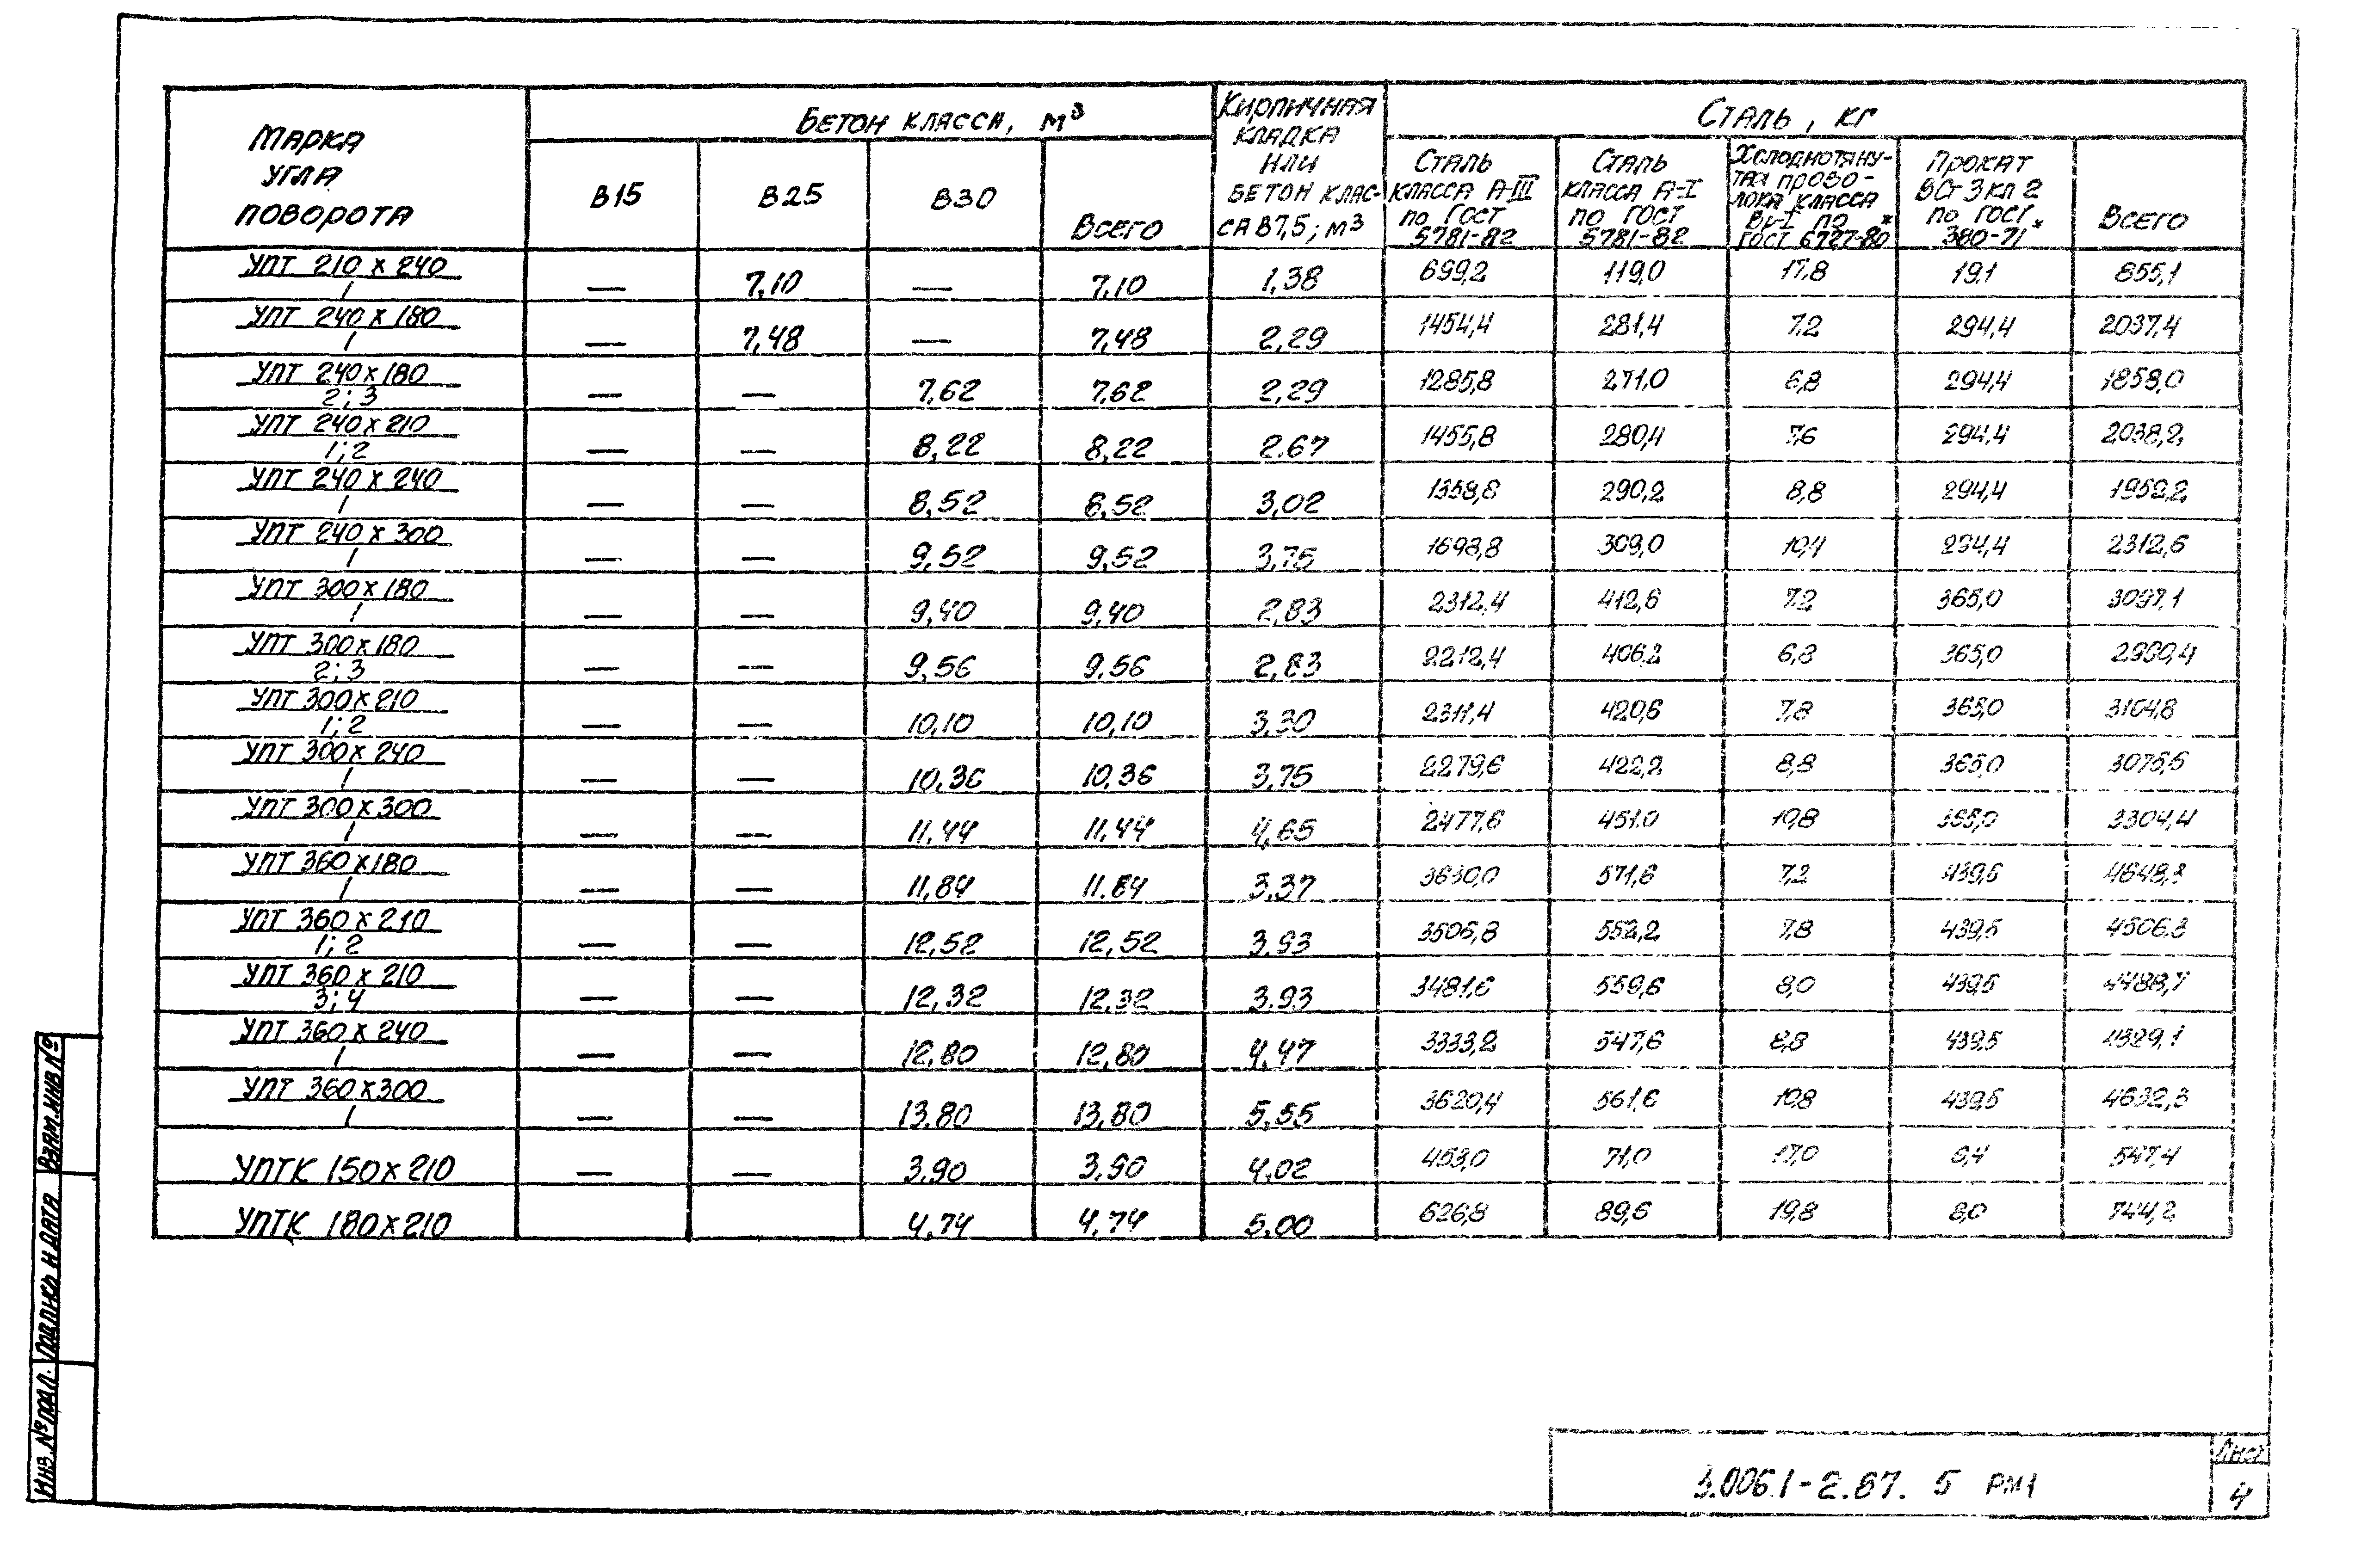 Марка угла поворота
Бетон класса, м³
Кирпичная кладка или бетон класса В7,5; м³
Сталь, кг
В15
В25
В30
Всего
Сталь класса А-III по ГОСТ 5781-82
Сталь класса А-I по ГОСТ 5781-82
Холоднотянутая проволока класса Вр-I по ГОСТ 6727-80*
Прокат ВСт 3 кп 2 по ГОСТ 380-71*
Всего
УПТ 210×240 / 1 — 7,10 — 7,10 1,38 699,2 119,0 17,8 19,1 855,1
УПТ 240×180 / 1 — 7,48 — 7,48 2,29 1454,4 281,4 7,2 294,4 2037,4
УПТ 240×180 / 2; 3 — — 7,62 7,62 2,29 1285,8 271,0 6,8 294,4 1858,0
УПТ 240×210 / 1; 2 — — 8,22 8,22 2.67 1455,8 280,4 7,6 294,4 2038,2
УПТ 240×240 / 1 — — 8,52 8,52 3,02 1358,8 290,2 8,8 294,4 1952,2
УПТ 240×300 / 1 — — 9,52 9,52 3,75 1698,8 309,0 10,4 294,4 2312,6
УПТ 300×180 / 1 — — 9,40 9,40 2,83 2312,4 412,6 7,2 365,0 3097,1
УПТ 300×180 / 2; 3 — — 9,56 9,56 2,83 2212,4 406,2 6,8 365,0 2990,4
УПТ 300×210 / 1; 2 — — 10,10 10,10 3,30 2311,4 420,6 7,8 365,0 3104,8
УПТ 300×240 / 1 — — 10,36 10,36 3,75 2279,6 422,2 8,8 365,0 3075,6
УПТ 300×300 / 1 — — 11,44 11,44 4,65 2477,6 451,0 10,8 365,0 3304,4
УПТ 360×180 / 1 — — 11,84 11.84 3,37 3630,0 571,6 7,2 439,5 4648,3
УПТ 360×210 / 1; 2 — — 12,52 12,52 3,93 3506,8 552,2 7,8 439,5 4506,3
УПТ 360×210 / 3; 4 — — 12,32 12,32 3.93 3481,6 559,6 8,0 439,5 4488,7
УПТ 360×240 / 1 — — 12,80 12,80 4,47 3333,2 547,6 8,8 439,5 4329,1
УПТ 360×300 / 1 — — 13,80 13,80 5,55 3620,4 561,6 10,8 439,5 4632,3
УПТК 150×210 — — 3,90 3,90 4,02 453,0 71,0 17,0 6,4 547,4
УПТК 180×210 4,74 4,74 5,00 626,8 89,6 19,8 8,0 744,2
Взам.инв.№
Подпись и дата
Инв.№подл.
3.006.1-2.87. 5 РМ1
Лист
4